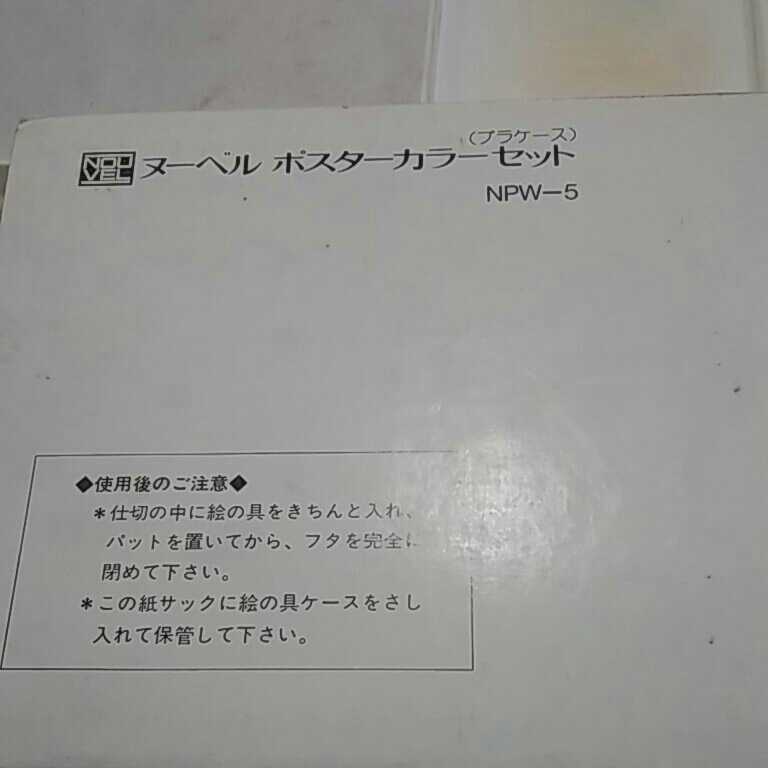 （プラケース）
NOU
VEL ヌーベル ポスターカラーセット
NPW−5
◆使用後のご注意◆
＊仕切の中に絵の具をきちんと入れ、
パットを置いてから、フタを完全に
閉めて下さい。
＊この紙サックに絵の具ケースをさし
入れて保管して下さい。